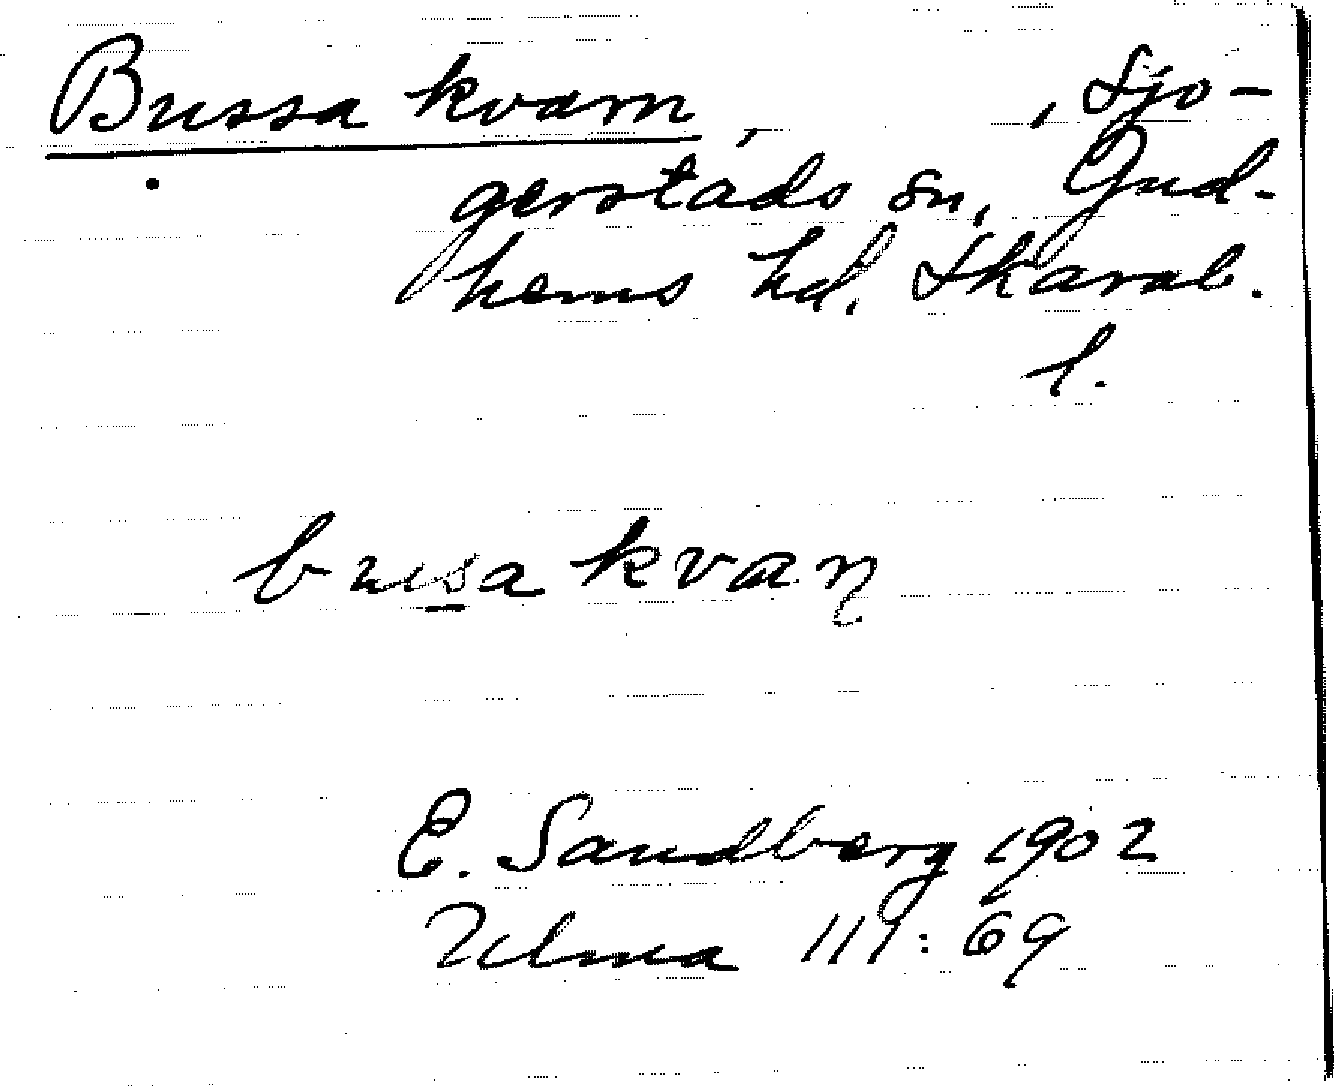 Bussa kvarn, , Sjo-
gerstads sn, Gud-
hems hd. Skarab.
l.
busa kvaη
E. Sandberg 1902
Ulma 111:69